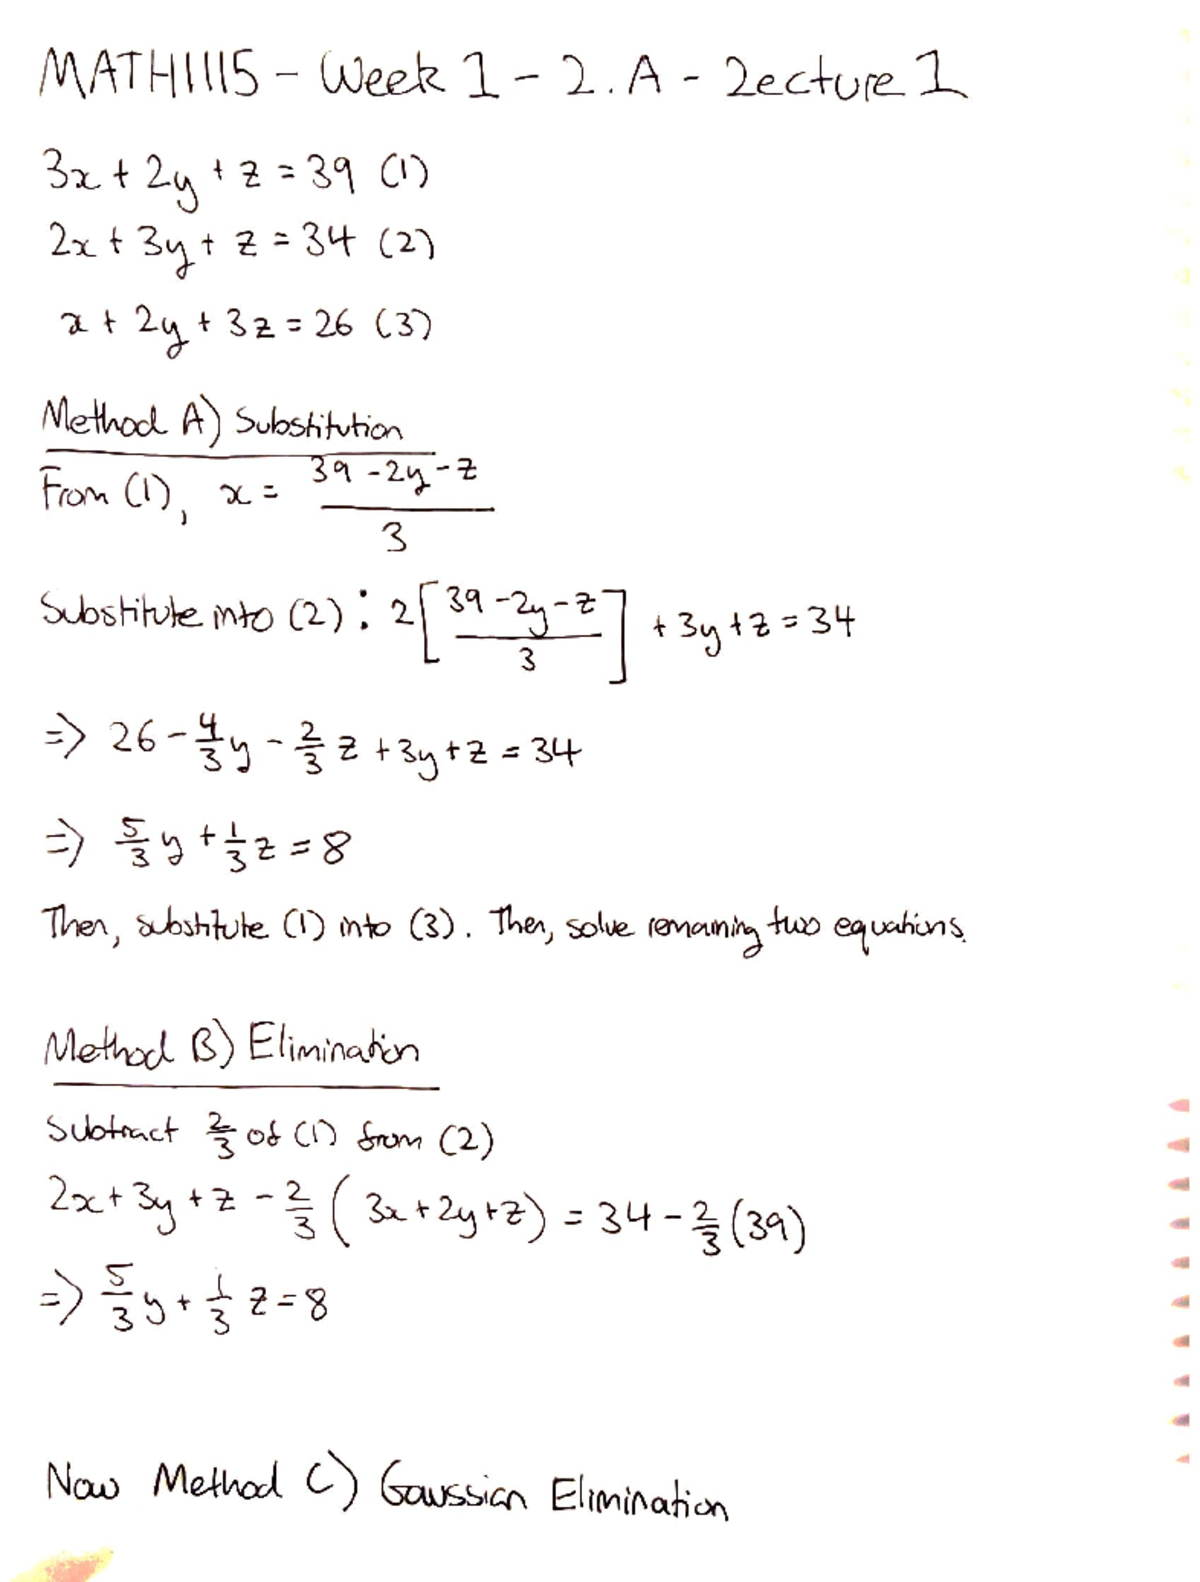 MATH1115 - Week 1 - 2.A - Lecture 1
3x + 2y + z = 39 (1)
2x + 3y + z = 34 (2)
x + 2y + 3z = 26 (3)
Method A) Substitution
From (1), x = (39 - 2y - z)/3
Substitute into (2): 2[(39 - 2y - z)/3] + 3y + z = 34
=> 26 - 4/3 y - 2/3 z + 3y + z = 34
=> 5/3 y + 1/3 z = 8
Then, substitute (1) into (3). Then, solve remaining two equations.
Method B) Elimination
Subtract 2/3 of (1) from (2)
2x + 3y + z - 2/3 (3x + 2y + z) = 34 - 2/3 (39)
=> 5/3 y + 1/3 z = 8
Now Method C) Gaussian Elimination